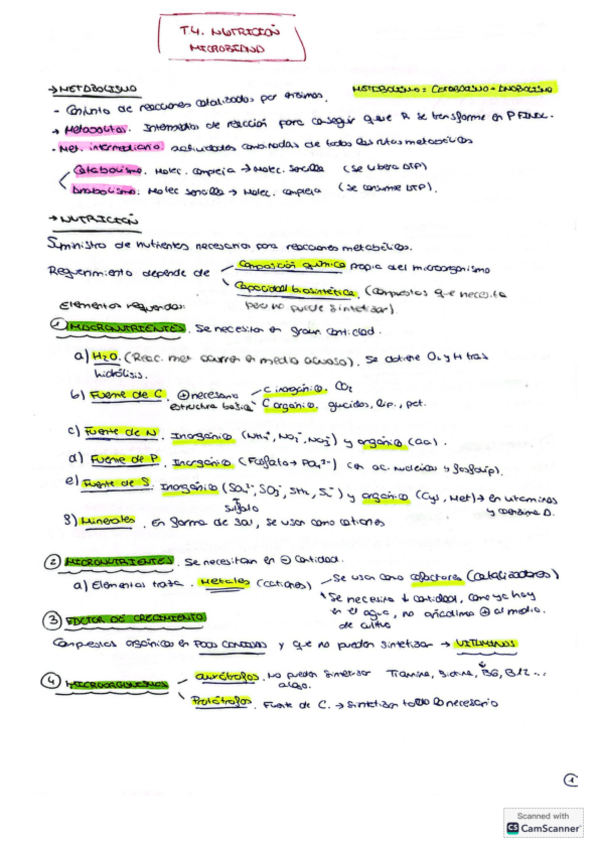 T4. NUTRICIÓN
MICROBIANA
→ METABOLISMO
METABOLISMO = CATABOLISMO + ANABOLISMO
- Conjunto de reacciones catalizadas por enzimas.
→ Metabolitos. Intermedios de reacción para conseguir que R se transforme en P FINAL.
- Met. intermediario: actividades combinadas de todas las rutas metabólicas
Catabolismo. Molec. compleja → Molec. sencilla (Se libera ATP)
Anabolismo. Molec sencilla → Molec. compleja (Se consume ATP).
→ NUTRICIÓN
Suministro de nutrientes necesarios para reacciones metabólicas.
Requerimiento depende de
Composición química propia del microorganismo
Capacidad biosintética. (Compuestos que necesita
pero no puede sintetizar).
Elementos requeridos:
1 MACRONUTRIENTES. Se necesitan en gran cantidad.
a) H2O. (Reac. met ocurren en medio acuoso). Se obtiene O2 y H tras
hidrólisis.
b) Fuente de C. + necesario
estructura básica
C inorgánico. CO2
C orgánico. glúcidos, líp., prot.
c) Fuente de N. Inorgánico (NH4+, NO2-, NO3-) y orgánico (aa).
d) Fuente de P. Inorgánico (Fosfato → PO4 3-) (en ac. nucleicos y fosfolip).
e) Fuente de S. Inorgánico (SO4 2-, SO3-, SH2, S-) y orgánico (Cys, Met) → en vitaminas
y coenzima A.
Sulfato
g) Minerales. en forma de sal, se usan como cationes
2 MICRONUTRIENTES. Se necesitan en - cantidad.
a) Elementos traza. Metales (cationes)
Se usan como cofactores (catalizadores)
Se necesita ↓ cantidad, como ya hay
en el agua, no añadimos + al medio
de cultivo
3 FACTOR DE CRECIMIENTO
Compuestos orgánicos en POCA CANTIDAD y que no pueden sintetizar → VITAMINAS
4 MICROORGANISMOS
auxótrofos. No pueden sintetizar
algo.
Tiamina, Biotina, B6, B12...
Protótrofos. Fuente de C. → Sintetizan todo lo necesario
1
Scanned with
CS CamScanner